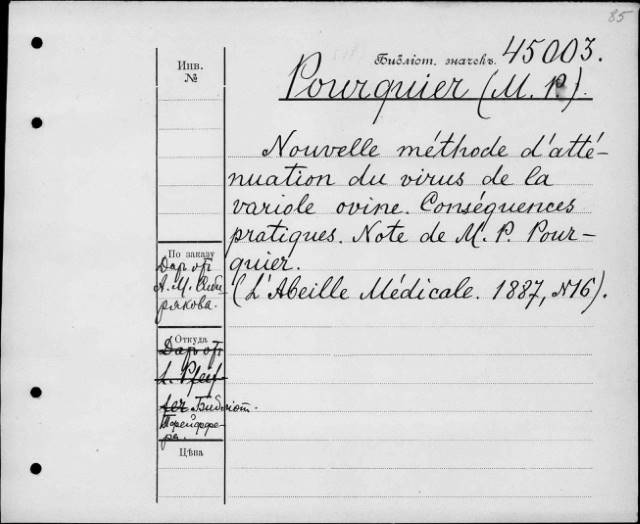 85
Инв.
№
Библіот. значекъ. 45003.
Pourquier (M. P.).
Nouvelle méthode d'atté-
nuation du virus de la
variole ovine. Conséquences
pratiques. Note de M. P. Pour-
quier.
(L'Abeille Médicale. 1887, N16).
По заказу
Дар от
А. М. Сиби-
рякова.
Откуда
Дар от
L. Pfeif-
fer Библіот.
Пфейффе-
ра.
Цѣна